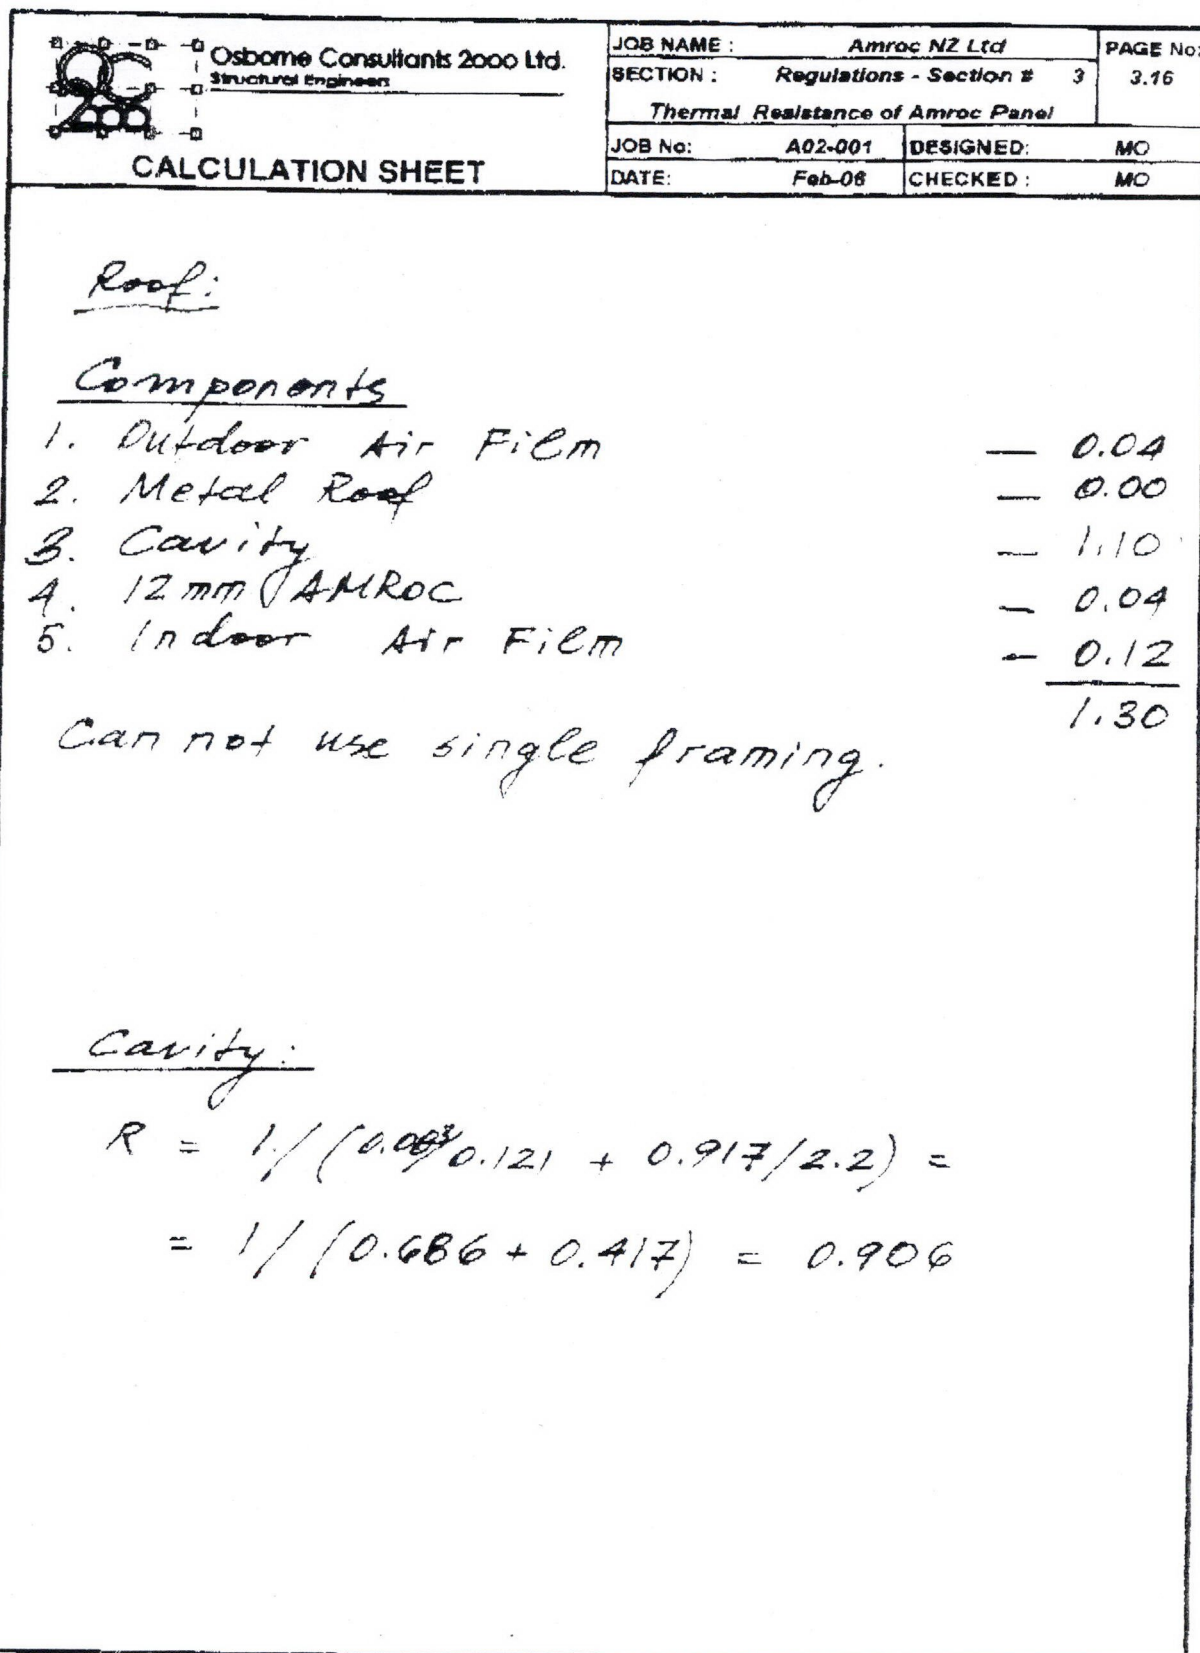 Osborne Consultants 2000 Ltd.
Structural Engineers
CALCULATION SHEET
JOB NAME : Amroc NZ Ltd
PAGE No:
SECTION : Regulations - Section # 3
3.16
Thermal Resistance of Amroc Panel
JOB No: A02-001 DESIGNED: MO
DATE: Feb-06 CHECKED : MO
Roof:
Components
1. Outdoor Air Film — 0.04
2. Metal Roof — 0.00
3. Cavity — 1.10
4. 12 mm AMROC — 0.04
5. Indoor Air Film - 0.12
1.30
Can not use single framing.
Cavity:
R = 1/(0.083/0.121 + 0.917/2.2) =
= 1/(0.686 + 0.417) = 0.906